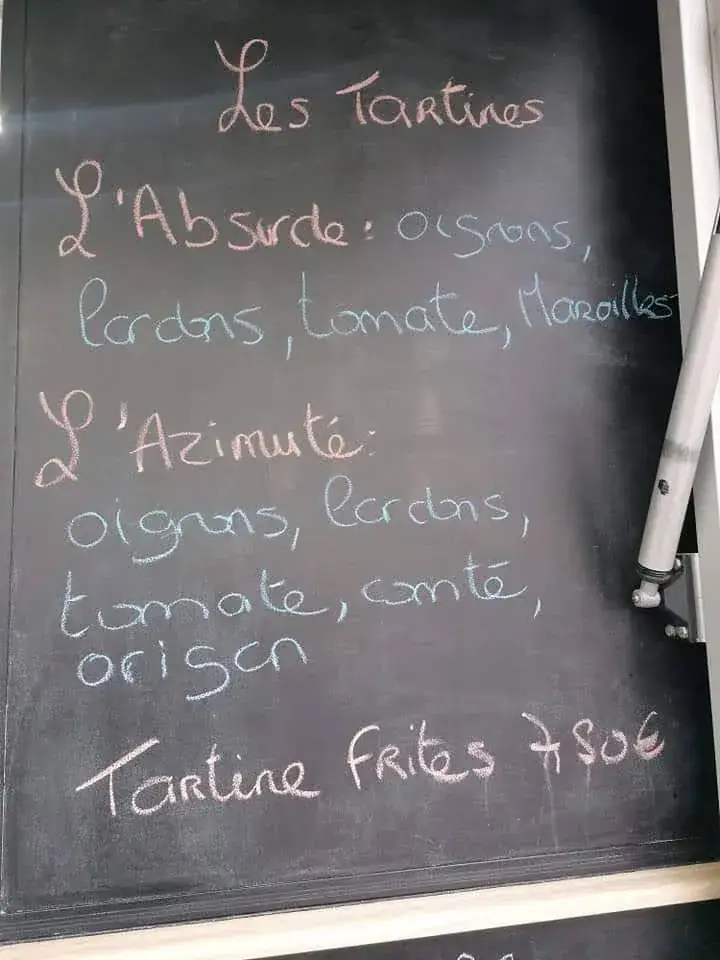 Les Tartines
L'Absurde: oignons,
lardons, tomate, Maroilles
L'Azimuté:
oignons, lardons,
tomate, comté,
origan
Tartine FRites 7,80€